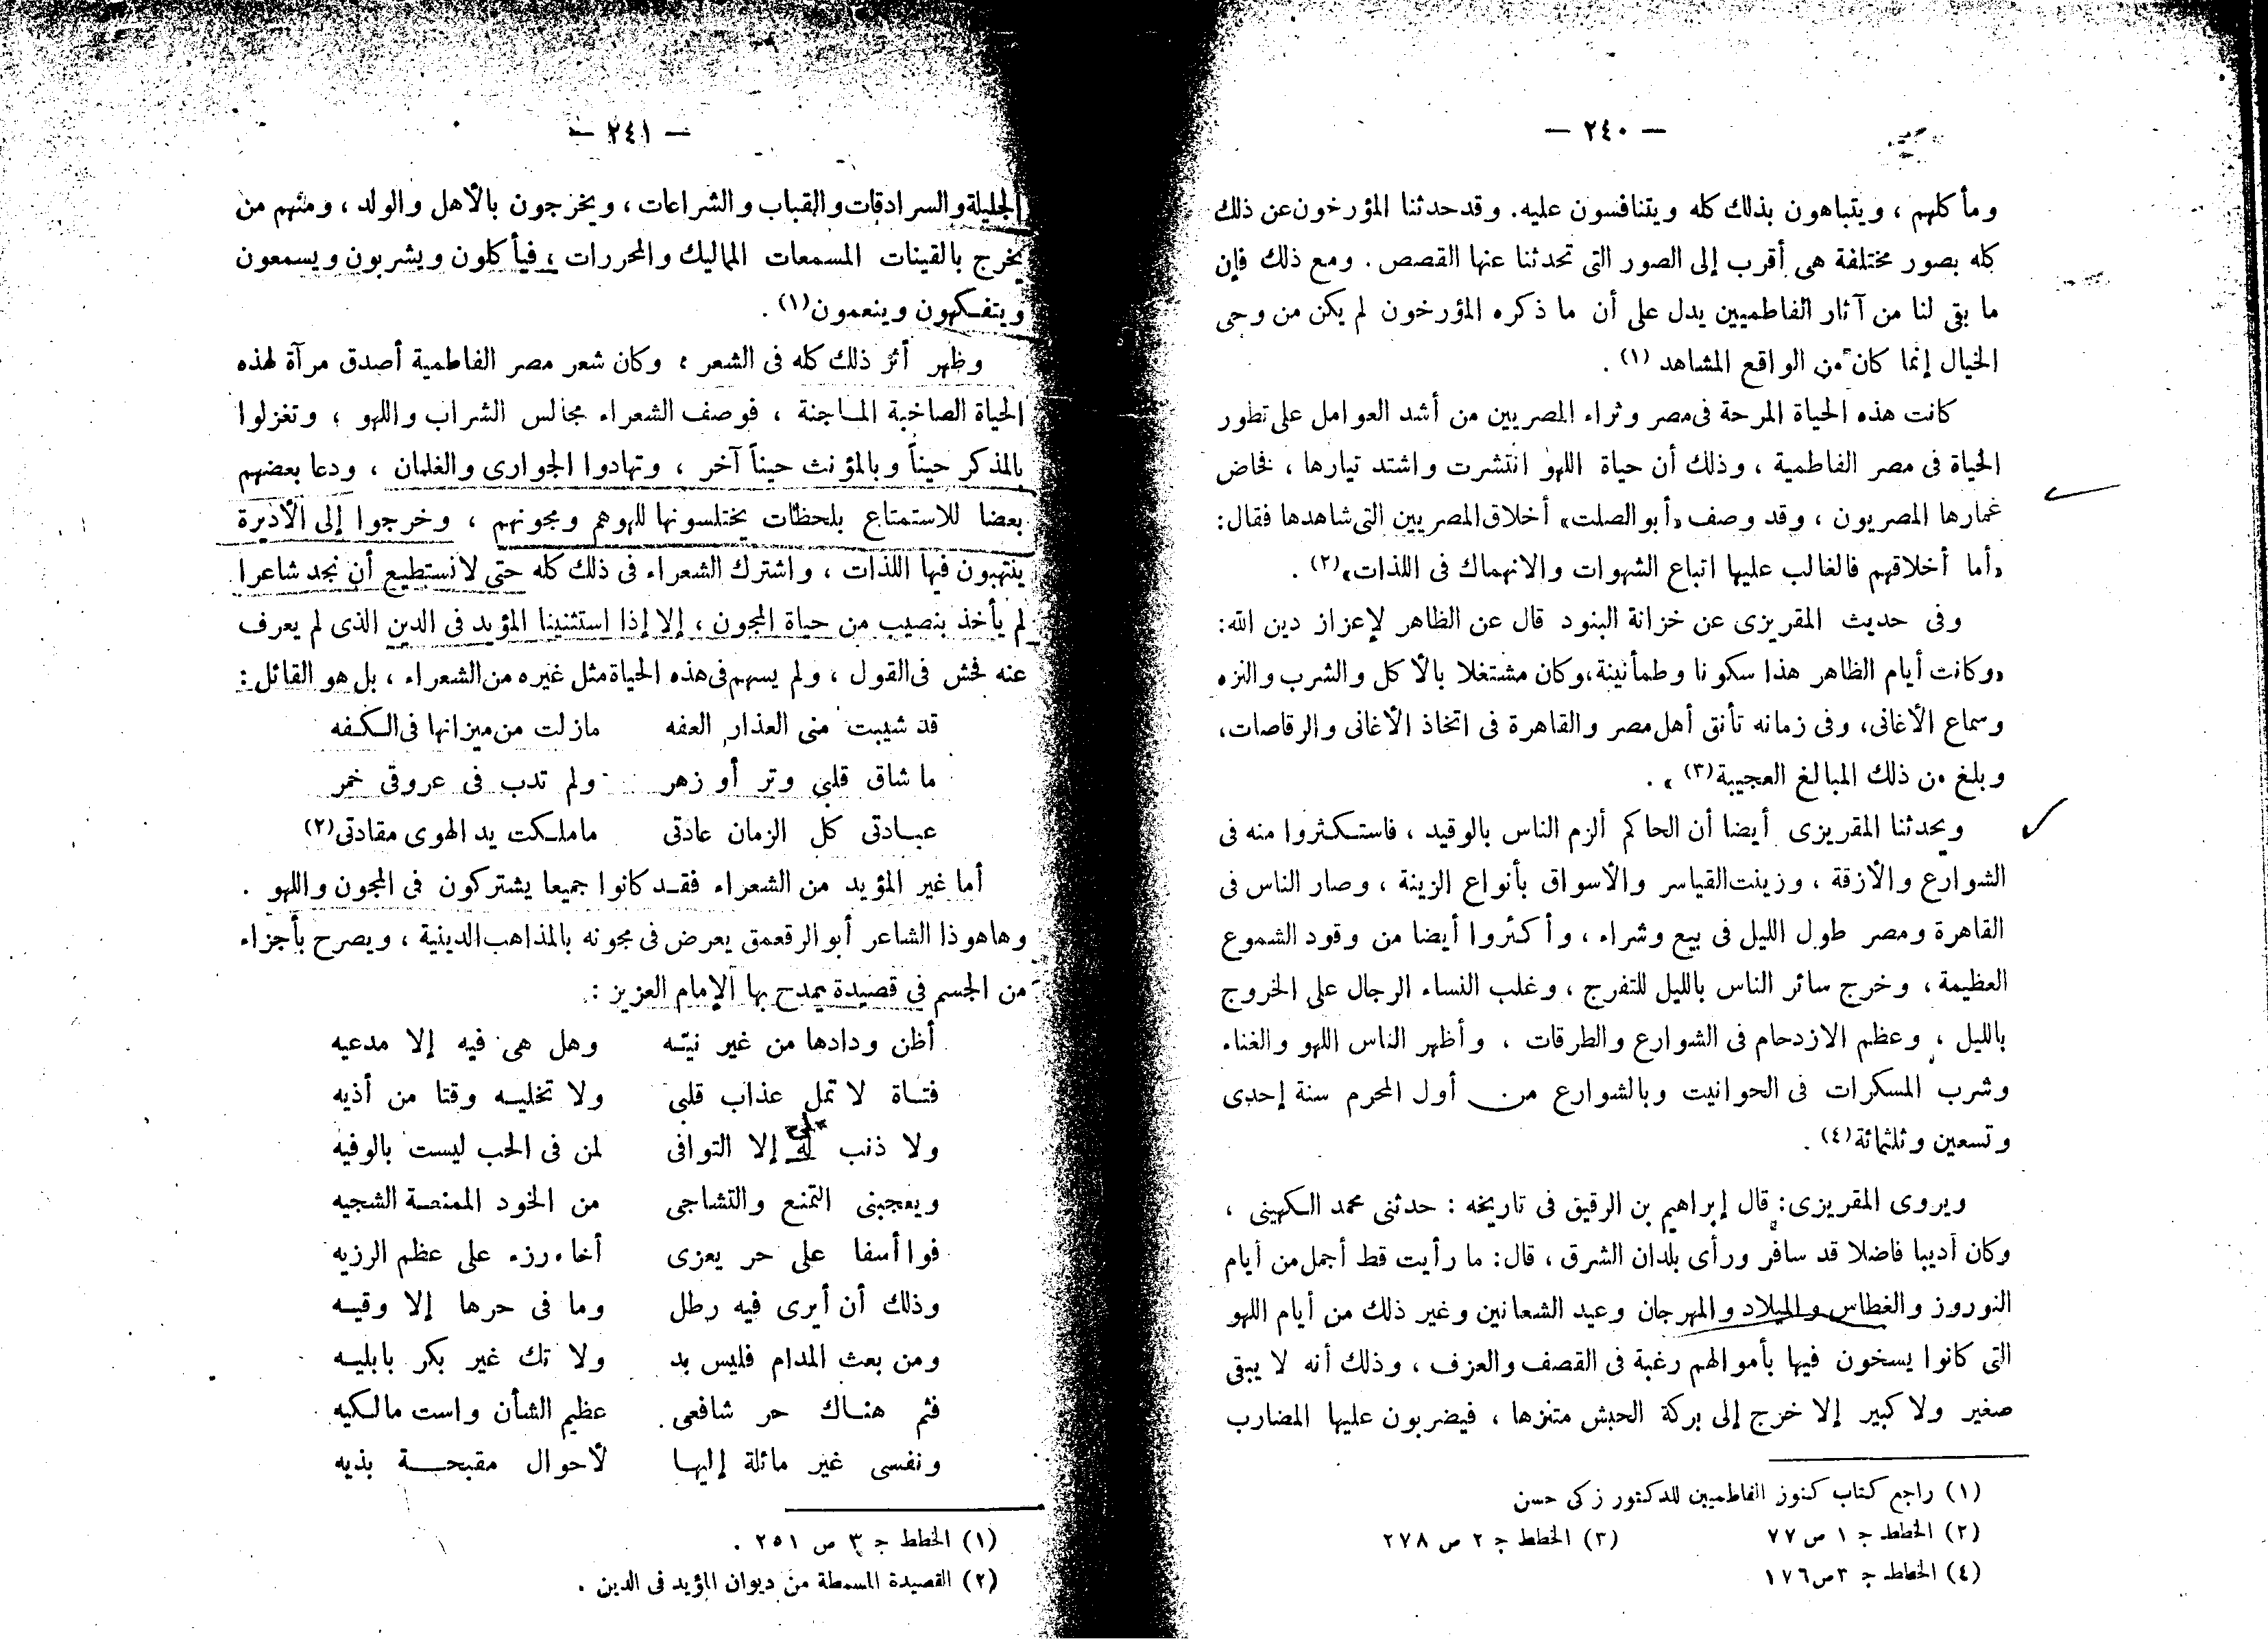 — ٢٤٠ —
ومأكلهم ، ويتباهون بذلك كله ويتنافسون عليه. وقد حدثنا المؤرخون عن ذلك
كله بصور مختلفة هى أقرب إلى الصور التى تحدثنا عنها القصص . ومع ذلك فإن
ما بقى لنا من آثار الفاطميين يدل على أن ما ذكره المؤرخون لم يكن من وحى
الخيال إنما كان من الواقع المشاهد (١) .
كانت هذه الحياة المرحة فى مصر وثراء المصريين من أشد العوامل على تطور
الحياة فى مصر الفاطمية ، وذلك أن حياة اللهو انتشرت واشتد تيارها ، فخاض
غمارها المصريون ، وقد وصف «أبو الصلت» أخلاق المصريين التى شاهدها فقال :
«أما أخلاقهم فالغالب عليها اتباع الشهوات والانهماك فى اللذات» (٢) .
وفى حديث المقريزى عن خزانة البنود قال عن الظاهر لإعزاز دين الله :
«وكانت أيام الظاهر هذا سكونا وطمأنينة، وكان مشتغلا بالأكل والشرب والنزه
وسماع الأغانى، وفى زمانه تأنق أهل مصر والقاهرة فى اتخاذ الأغانى والرقاصات،
وبلغ من ذلك المبالغ العجيبة (٣) » .
ويحدثنا المقريزى أيضا أن الحاكم ألزم الناس بالوقيد ، فاستكثروا منه فى
الشوارع والأزقة ، وزينت القياسر والأسواق بأنواع الزينة ، وصار الناس فى
القاهرة ومصر طول الليل فى بيع وشراء ، وأكثروا أيضا من وقود الشموع
العظيمة ، وخرج سائر الناس بالليل للتفرج ، وغلب النساء الرجال على الخروج
بالليل ، وعظم الازدحام فى الشوارع والطرقات ، وأظهر الناس اللهو والغناء
وشرب المسكرات فى الحوانيت وبالشوارع من أول المحرم سنة إحدى
وتسعين وثلثمائة (٤) .
ويروى المقريزى : قال إبراهيم بن الرقيق فى تاريخه : حدثنى محمد الكهينى ،
وكان أديبا فاضلا قد سافر ورأى بلدان الشرق ، قال : ما رأيت قط أجمل من أيام
النوروز والغطاس والميلاد والمهرجان وعيد الشعانين وغير ذلك من أيام اللهو
التى كانوا يسخون فيها بأموالهم رغبة فى القصف والعزف ، وذلك أنه لا يبقى
صغير ولا كبير إلا خرج إلى بركة الحبش متنزها ، فيضربون عليها المضارب
(١) راجع كتاب كنوز الفاطميين للدكتور زكى حسن
(٢) الخطط ج ١ ص ٧٧ (٣) الخطط ج ٢ ص ٢٧٨
(٤) الخطط ج ٣ ص ١٧٦
— ٢٤١ —
الجليلة والسرادقات والقباب والشراعات ، ويخرجون بالأهل والولد ، ومنهم من
يخرج بالقينات المسمعات المماليك والمحررات ، فيأكلون ويشربون ويسمعون
ويتفكهون وينعمون (١) .
وظهر أثر ذلك كله فى الشعر ، وكان شعر مصر الفاطمية أصدق مرآة لهذه
الحياة الصاخبة الماجنة ، فوصف الشعراء مجالس الشراب واللهو ، وتغزلوا
بالمذكر حيناً وبالمؤنث حيناً آخر ، وتهادوا الجوارى والغلمان ، ودعا بعضهم
بعضا للاستمتاع بلحظات يختلسونها للهوهم ومجونهم ، وخرجوا إلى الأديرة
ينتهبون فيها اللذات ، واشترك الشعراء فى ذلك كله حتى لا نستطيع أن نجد شاعرا
لم يأخذ بنصيب من حياة المجون ، إلا إذا استثنينا المؤيد فى الدين الذى لم يعرف
عنه فحش فى القول ، ولم يسهم فى هذه الحياة مثل غيره من الشعراء ، بل هو القائل :
قد شيبت منى العذار العفه مازلت من ميزانها فى الكفه
ما شاق قلبى وتر أو زهر ولم تدب فى عروقى خمر
عبادتى كل الزمان عادتى ماملكت يد الهوى مقادتى (٢)
أما غير المؤيد من الشعراء فقد كانوا جميعا يشتركون فى المجون واللهو .
وهاهوذا الشاعر أبو الرقعمق يعرض فى مجونه بالمذاهب الدينية ، ويصرح بأجزاء
من الجسم فى قصيدة يمدح بها الإمام العزيز :
أظن ودادها من غير نيّه وهل هى فيه إلا مدعيه
فتاة لا تمل عذاب قلبى ولا تخليه وقتا من أذيه
ولا ذنب له إلا التوافى لمن فى الحب ليست بالوفيه
ويعجبنى التمنع والتشاجى من الخود الممنعة الشجيه
فوا أسفا على حر يعزى أخاه رزء على عظم الرزيه
وذلك أن أيرى فيه رطل وما فى حرها إلا وقيه
ومن بعث المدام فليس بد ولا تك غير بكر بابليه
فثم هناك حر شافعى عظيم الشأن واست مالكيه
ونفسى غير مائلة إليها لأحوال مقبحة بذيه
(١) الخطط ج ٣ ص ٢٥١ .
(٢) القصيدة المسمطة من ديوان المؤيد فى الدين .